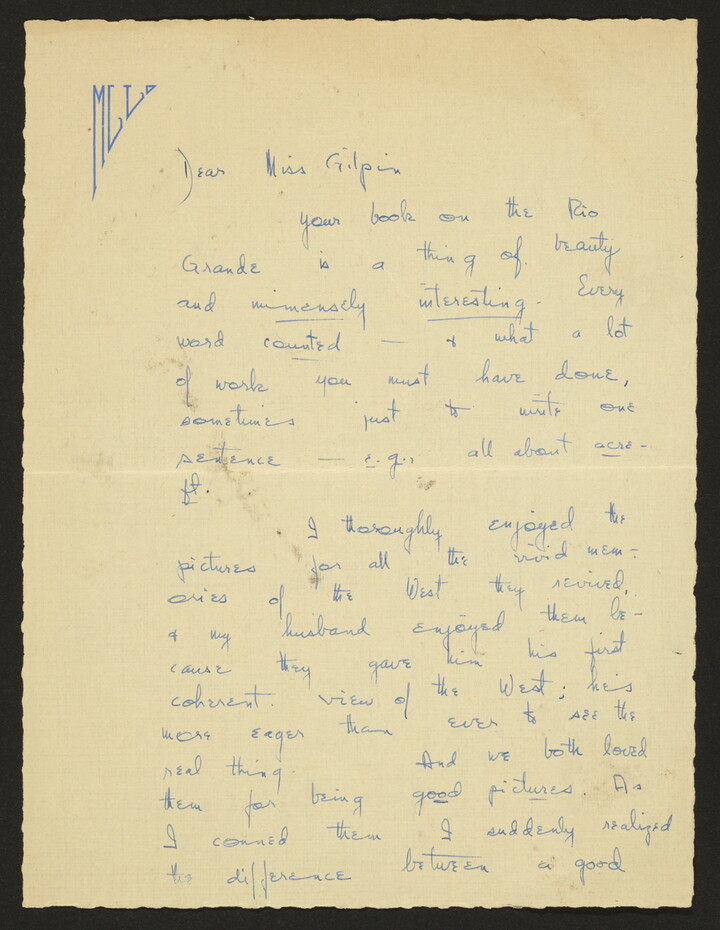 Dear Miss Gilpin
your book on the Rio
Grande is a thing of beauty
and immensely interesting. Every
word counted — & what a lot
of work you must have done,
sometimes just to write one
sentence — e.g., all about acre-
ft.
I thoroughly enjoyed the
pictures for all the vivid mem-
ories of the West they revived,
& my husband enjoyed them be-
cause they gave him his first
coherent view of the West; he's
more eager than ever to see the
real thing. And we both loved
them for being good pictures. As
I conned them I suddenly realized
the difference between a good